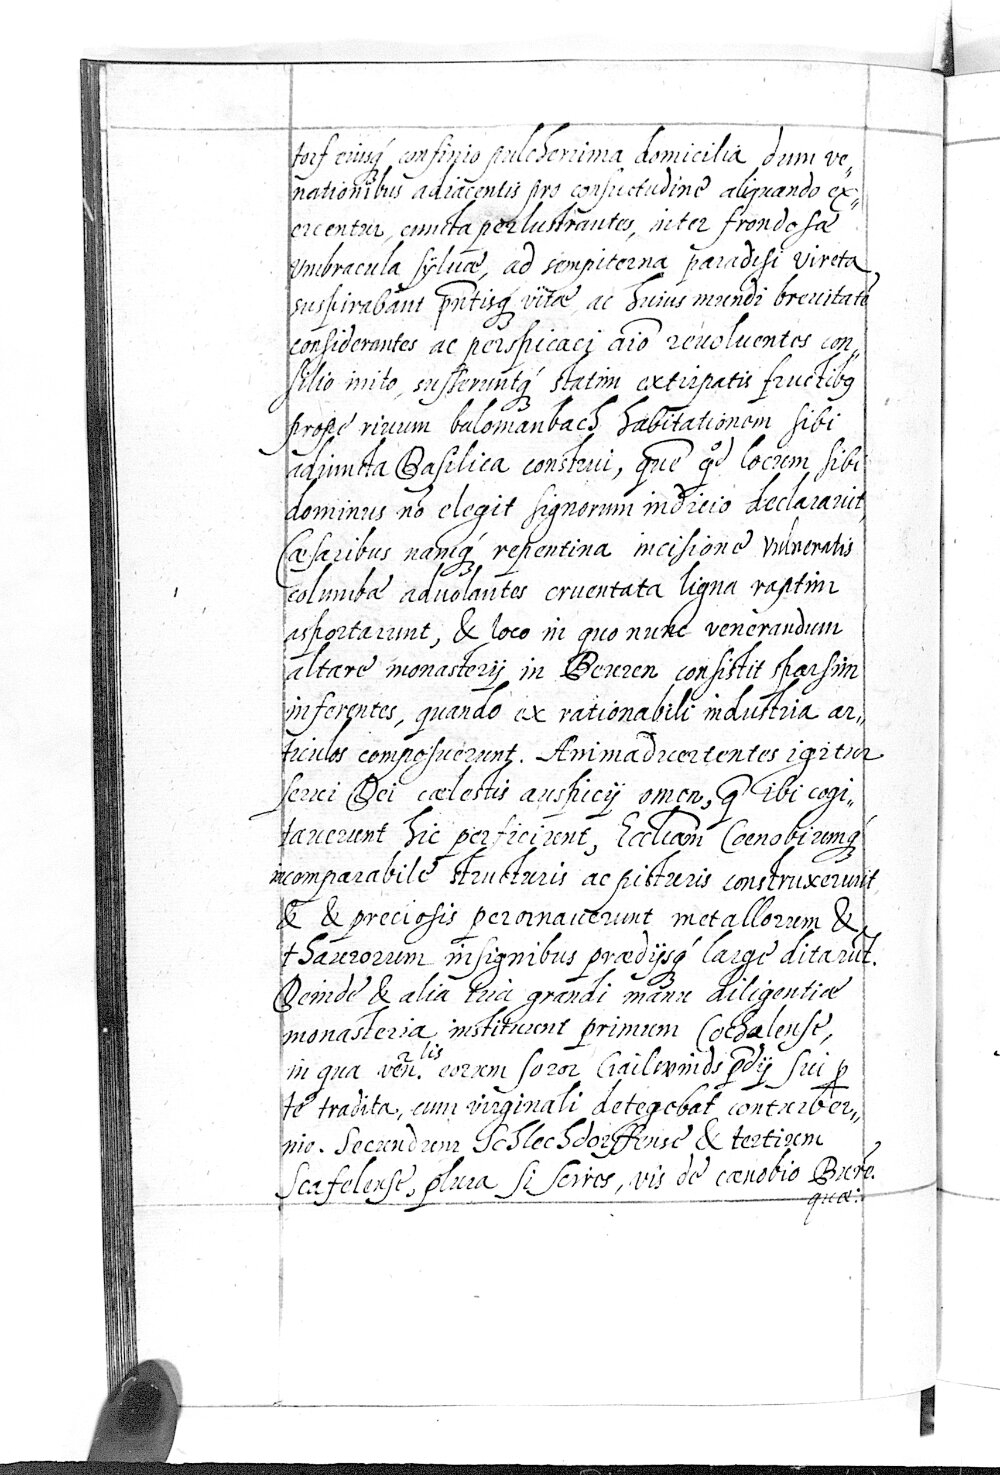 torf eiusq́ confinio pulcherrima domicilia dum ve„
nationibus adiacentis pro consuetudine aliquando ex„
ercentur, cuncta perlustrantes, inter frondosæ
Vmbracula sÿluæ, ad sempiterna paradisi vireta
suspirabant pñtisq́ vitæ ac huius mundi breuitate
considerantes ac perspicaci aĩo reuoluentes con„
silio inito, statim extirpatis fructibꝰ
prope riuum balomanbach habitationem sibi
adiuncta Basilica construi, que qd̊ locum sibi
dominus nõ elegit signorum indicio declarauit,
Cæsaribus namq́ repentina incisione vulneratis
columbæ aduolantes cruentata ligna raptim
asportarunt, & loco in quo nunc venerandum
altare monasterij in Beuren consistit sparsim
inferentes, quando ex rationabili industria ar„
ticulos composuerunt. Animaduertentes igitur
serui Dei cœlestis auspicij omen, q̃ ibi cogi„
tauerunt hic perficirent, Eccl̃iam Coenobiumq́
incomparabile structuris ac picturis construxerunt,
& & preciosis perornauerunt metallorum &
thaurorum insignibus prædijsq́ large ditarũt.
Deinde & alia tria grandi manu diligentiæ
monasteria instituunt primum Cochalense,
in qua veñ.lis eorum soror Gailswinds p̃dij sui ꝑ
te tradita, cum virginali detegebat contuber„
nio. Secundum Schlechdorffense & tertium
Stafelense, plura si scires, vis de cænobio Bure.
quæ: